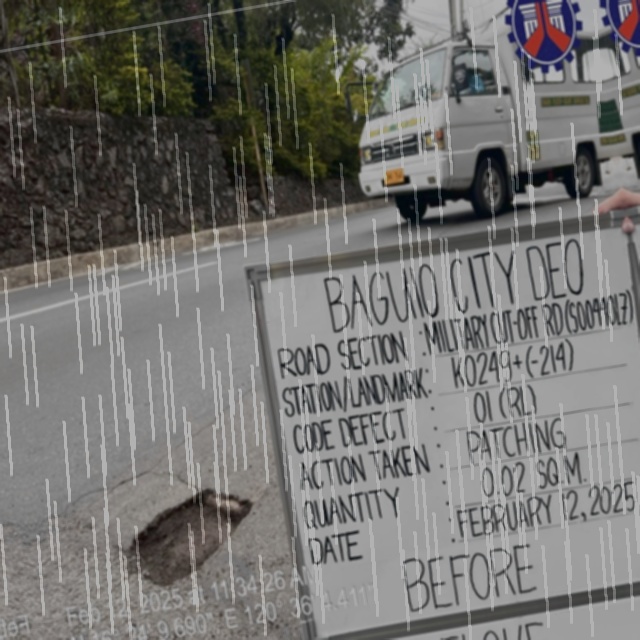 BAGUIO CITY DEO
ROAD SECTION : MILITARY CUT-OFF RD (S00941LZ)
STATION/LANDMARK: K0249+(-214)
CODE DEFECT : 01 (RL)
ACTION TAKEN : PATCHING
QUANTITY : 0.02 SQ.M.
DATE : FEBRUARY 12, 2025
BEFORE
2025 11:04:26 AM